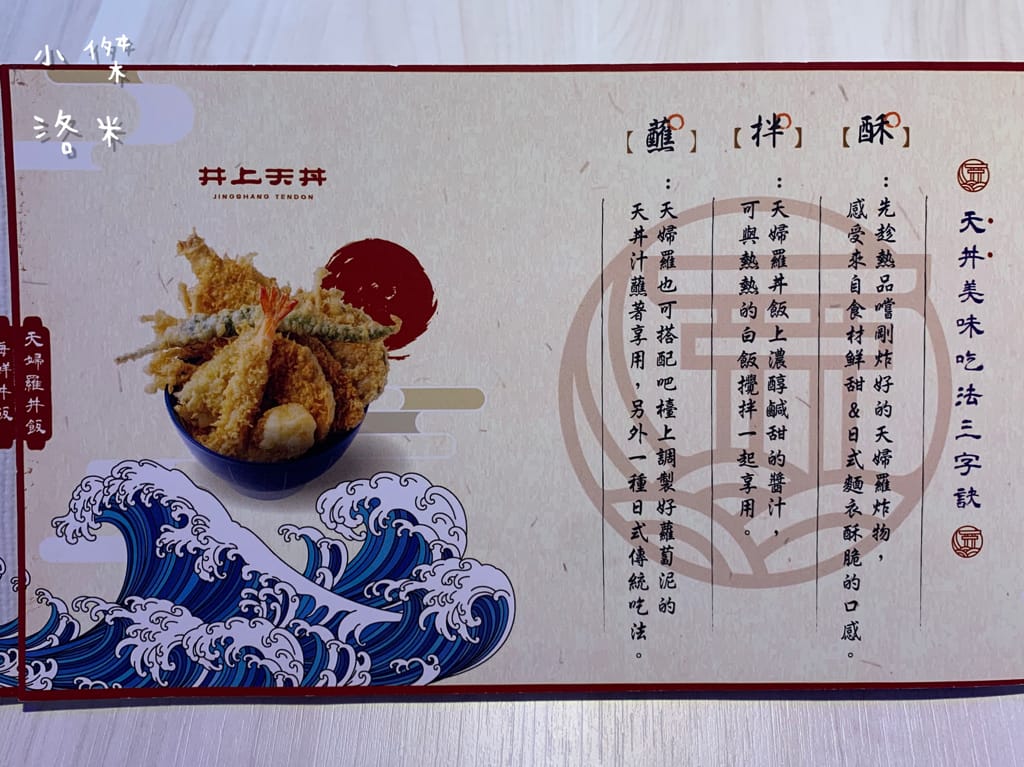 小傑
洛米
井上天丼
JINGSHANG TENDON
天丼美味吃法三字訣
【酥】
：先趁熱品嚐剛炸好的天婦羅炸物，
感受來自食材鮮甜&日式麵衣酥脆的口感。
【拌】
：天婦羅丼飯上濃醇鹹甜的醬汁，
可與熱熱的白飯攪拌一起享用。
【蘸】
：天婦羅也可搭配吧檯上調製好蘿蔔泥的
天丼汁蘸著享用，另外一種日式傳統吃法。
天婦羅丼飯
海鮮丼飯